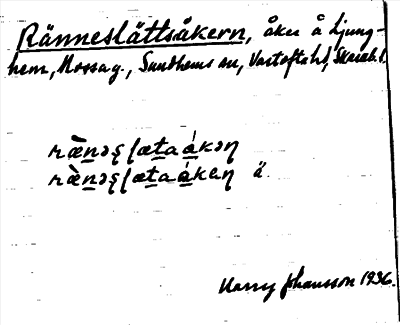 Ränneslättsåkern, åker å Ljung-
hem, Mossag., Sundhems sn, Vartofta hd, Skarab. l.
ræ̀nəʂ ʃæta ákəɳ
ræ̀nəʂ ʃæta ákaɳ ä.
Harry Johansson 1936.